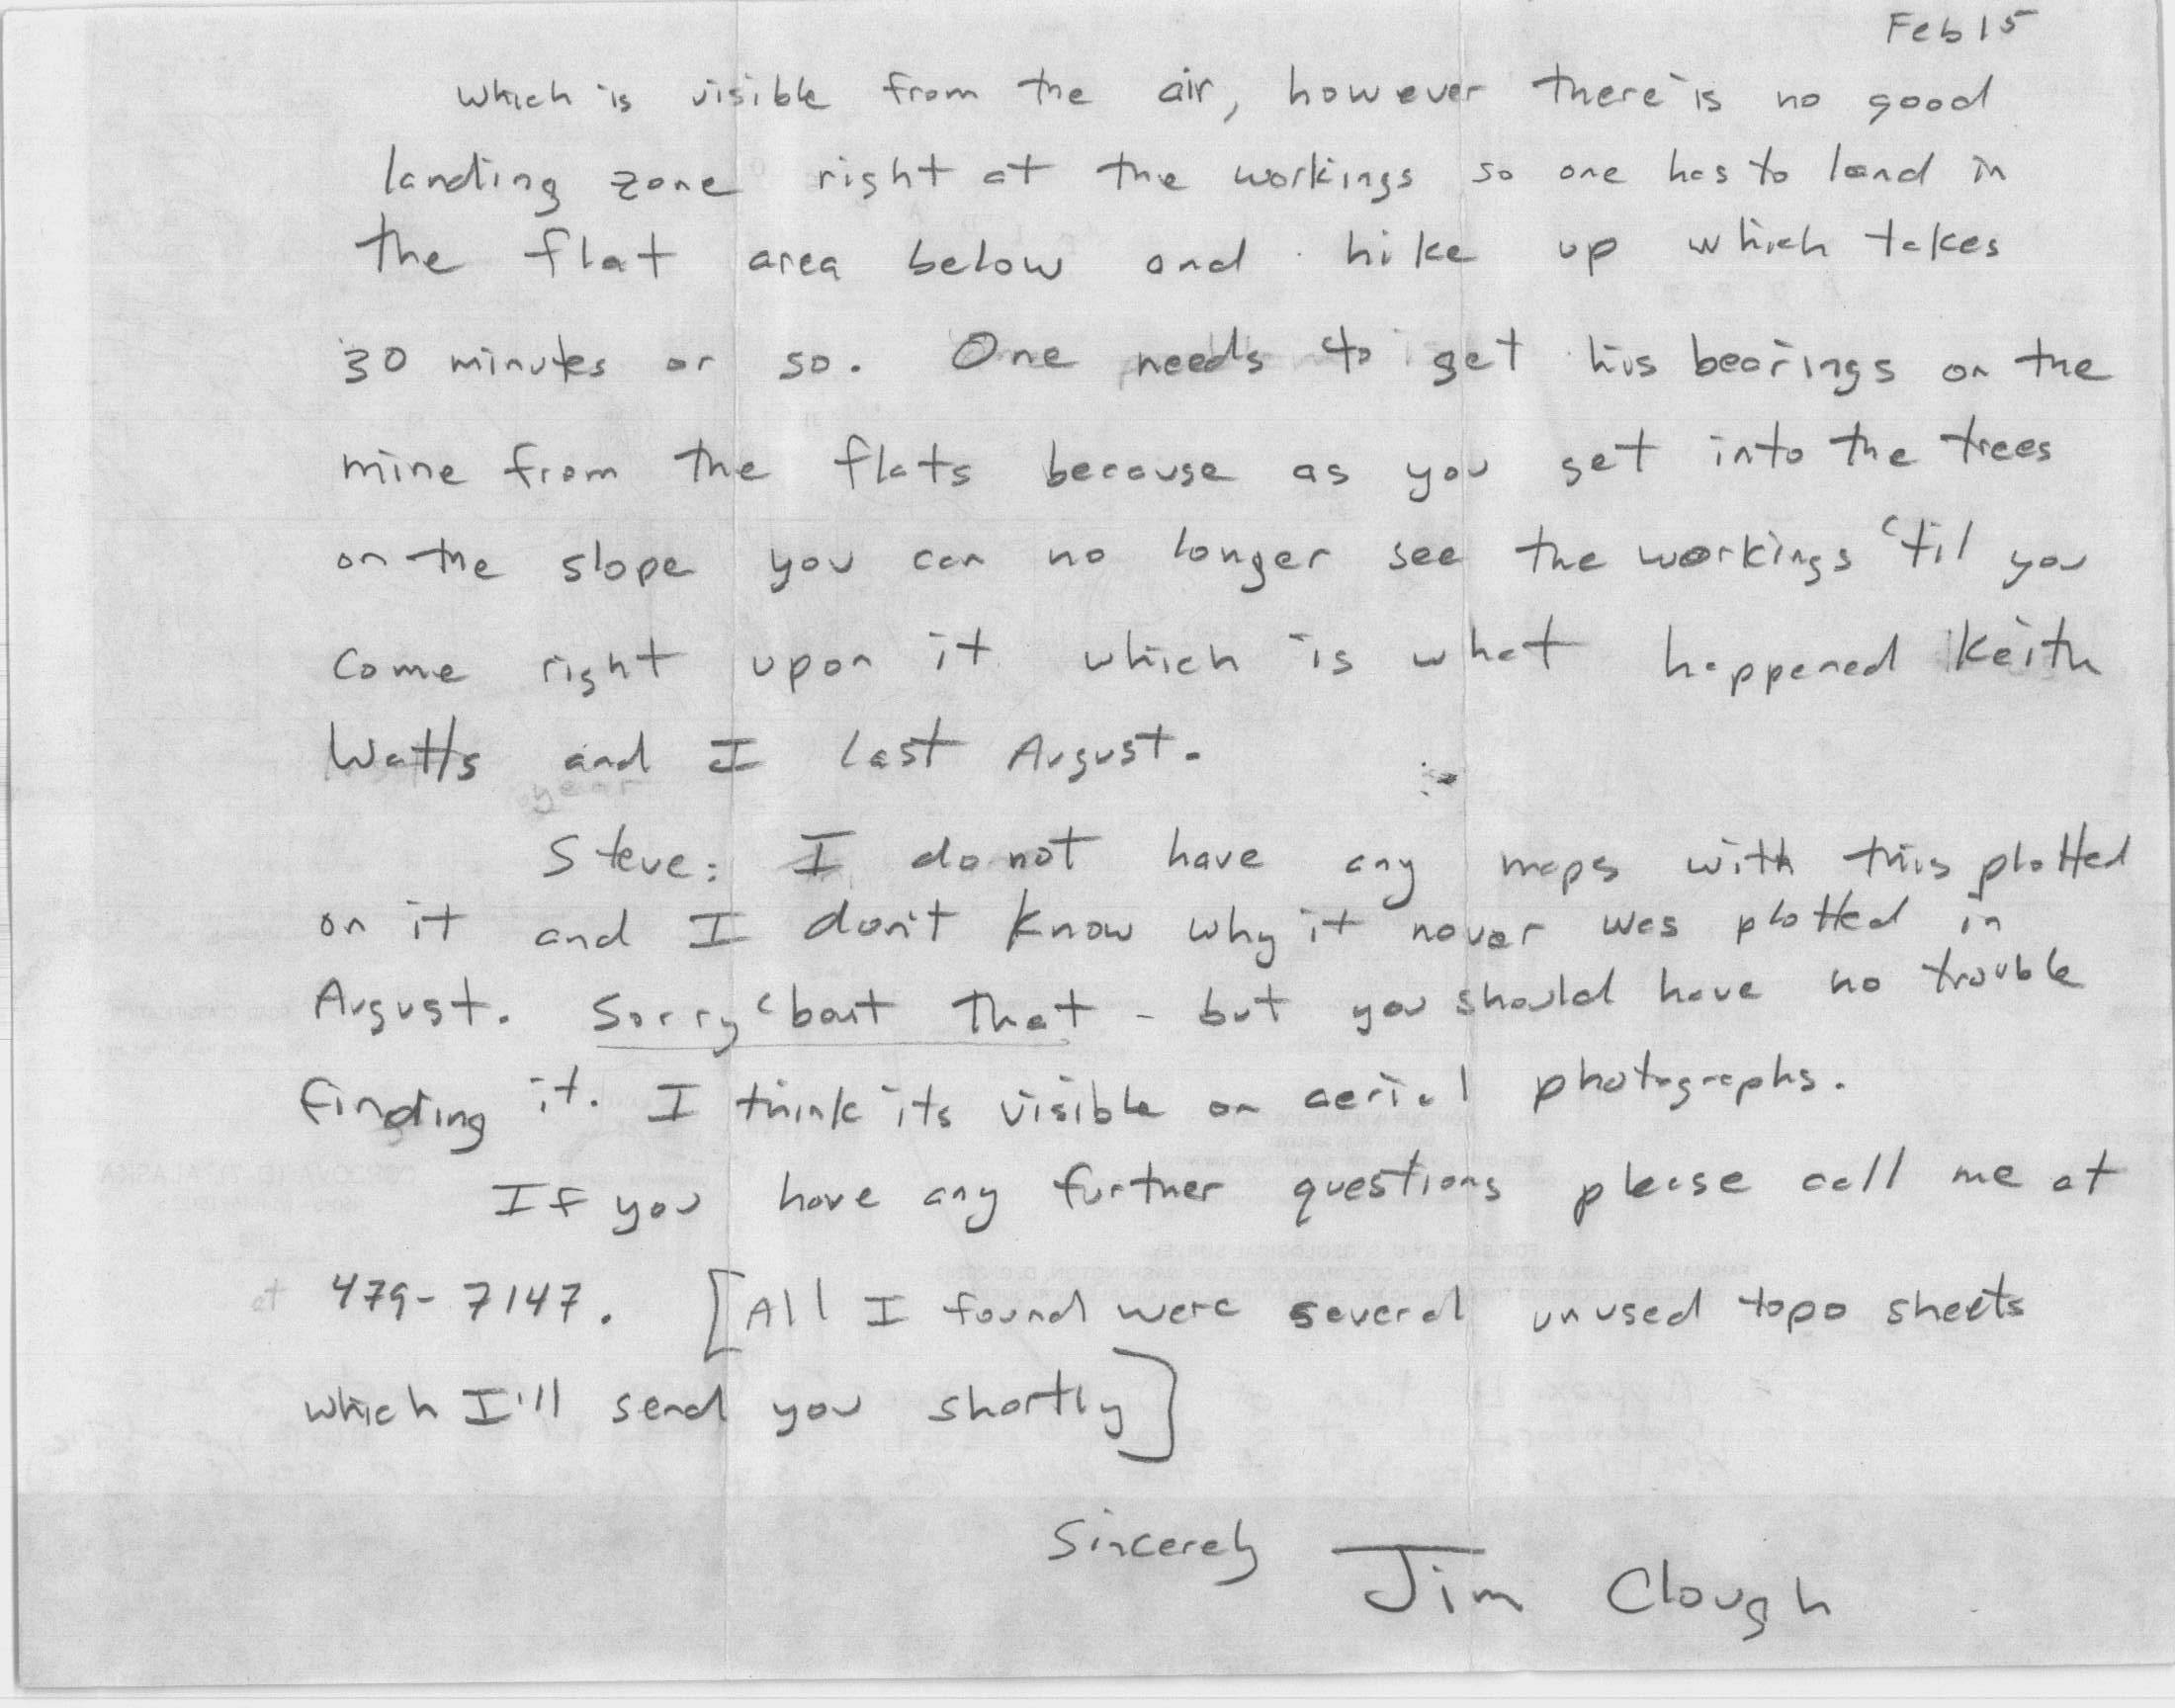 Feb 15
which is visible from the air, however there is no good
landing zone right at the workings so one has to land in
the flat area below and hike up which takes
30 minutes or so. One needs to get his bearings on the
mine from the flats because as you get into the trees
on the slope you can no longer see the workings 'til you
come right upon it which is what happened Keith
Watts and I last August.
year
Steve: I do not have any maps with this plotted
on it and I don't know why it never was plotted in
August. Sorry 'bout that - but you should have no trouble
finding it. I think its visible on aerial photographs.
If you have any further questions please call me at
at 479-7147. [All I found were several unused topo sheets
which I'll send you shortly]
Sincerely Jim Clough